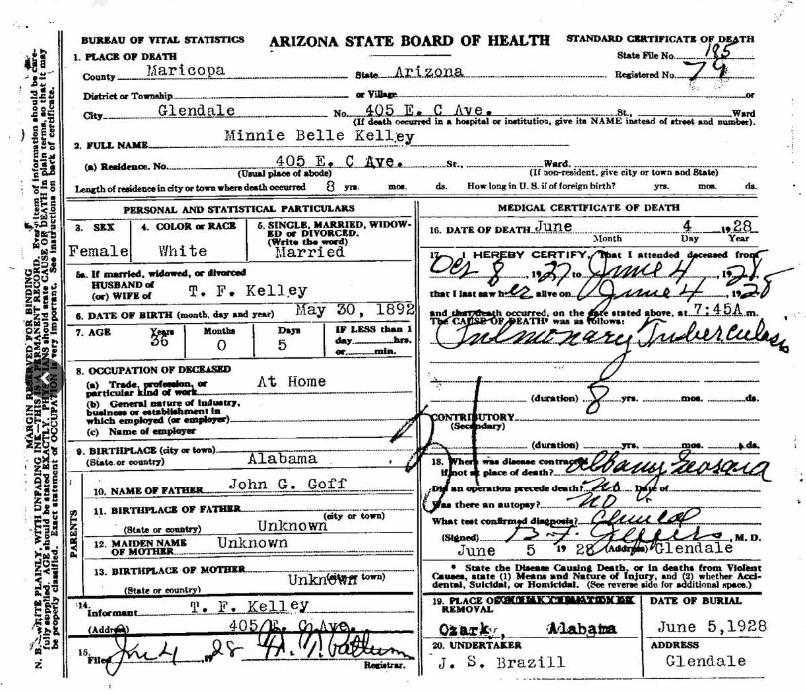 BUREAU OF VITAL STATISTICS ARIZONA STATE BOARD OF HEALTH STANDARD CERTIFICATE OF DEATH
1. PLACE OF DEATH State File No. 185
County Maricopa State Arizona Registered No. 79
District or Township or Village or
City Glendale No. 405 E. C Ave. St., Ward
(If death occurred in a hospital or institution, give its NAME instead of street and number).
2. FULL NAME Minnie Belle Kelley
(a) Residence. No. 405 E. C Ave. St., Ward.
(Usual place of abode) (If non-resident, give city or town and State)
Length of residence in city or town where death occurred 8 yrs. mos. ds. How long in U. S. if of foreign birth? yrs. mos. ds.
PERSONAL AND STATISTICAL PARTICULARS
3. SEX 4. COLOR or RACE 5. SINGLE, MARRIED, WIDOW-
ED or DIVORCED.
(Write the word)
Female White Married
5a. If married, widowed, or divorced
HUSBAND of
(or) WIFE of T. F. Kelley
6. DATE OF BIRTH (month, day and year) May 30, 1892
7. AGE Years Months Days IF LESS than 1
36 0 5 day hrs.
or min.
8. OCCUPATION OF DECEASED
(a) Trade, profession, or
particular kind of work At Home
(b) General nature of industry,
business or establishment in
which employed (or employer)
(c) Name of employer
9. BIRTHPLACE (city or town)
(State or country) Alabama
PARENTS
10. NAME OF FATHER John G. Goff
11. BIRTHPLACE OF FATHER
(city or town)
(State or country) Unknown
12. MAIDEN NAME
OF MOTHER Unknown
13. BIRTHPLACE OF MOTHER
Unknown (city or town)
(State or country)
14.
Informant T. F. Kelley
(Address) 405 E. C Ave.
15.
Filed 4, 1928
Registrar.
MEDICAL CERTIFICATE OF DEATH
16. DATE OF DEATH June 4 1928
Month Day Year
17. I HEREBY CERTIFY, That I attended deceased from
Oct 8, 1927 to June 4, 1928
that I last saw her alive on June 4, 1928
and that death occurred, on the date stated above, at 7:45A m.
The CAUSE OF DEATH* was as follows:
Pulmonary Tuberculosis
(duration) 8 yrs. mos. ds.
CONTRIBUTORY
(Secondary)
(duration) yrs. mos. ds.
18. Where was disease contracted
if not at place of death? Albany Georgia
Did an operation precede death? No Date of
Was there an autopsy? NO
What test confirmed diagnosis? Clinical
(Signed) , M. D.
June 5 1928 (Address) Glendale
* State the Disease Causing Death, or in deaths from Violent
Causes, state (1) Means and Nature of Injury, and (2) whether Acci-
dental, Suicidal, or Homicidal. (See reverse side for additional space.)
19. PLACE OF DATE OF BURIAL
REMOVAL
Ozark, Alabama June 5,1928
20. UNDERTAKER ADDRESS
J. S. Brazill Glendale
N. B.—WRITE PLAINLY, WITH UNFADING INK—THIS IS A PERMANENT RECORD. Every item of information should be care-
fully supplied. AGE should be stated EXACTLY. PHYSICIANS should state CAUSE OF DEATH in plain terms, so that it may
be properly classified. Exact statement of OCCUPATION is very important. See instructions on back of certificate.
MARGIN RESERVED FOR BINDING